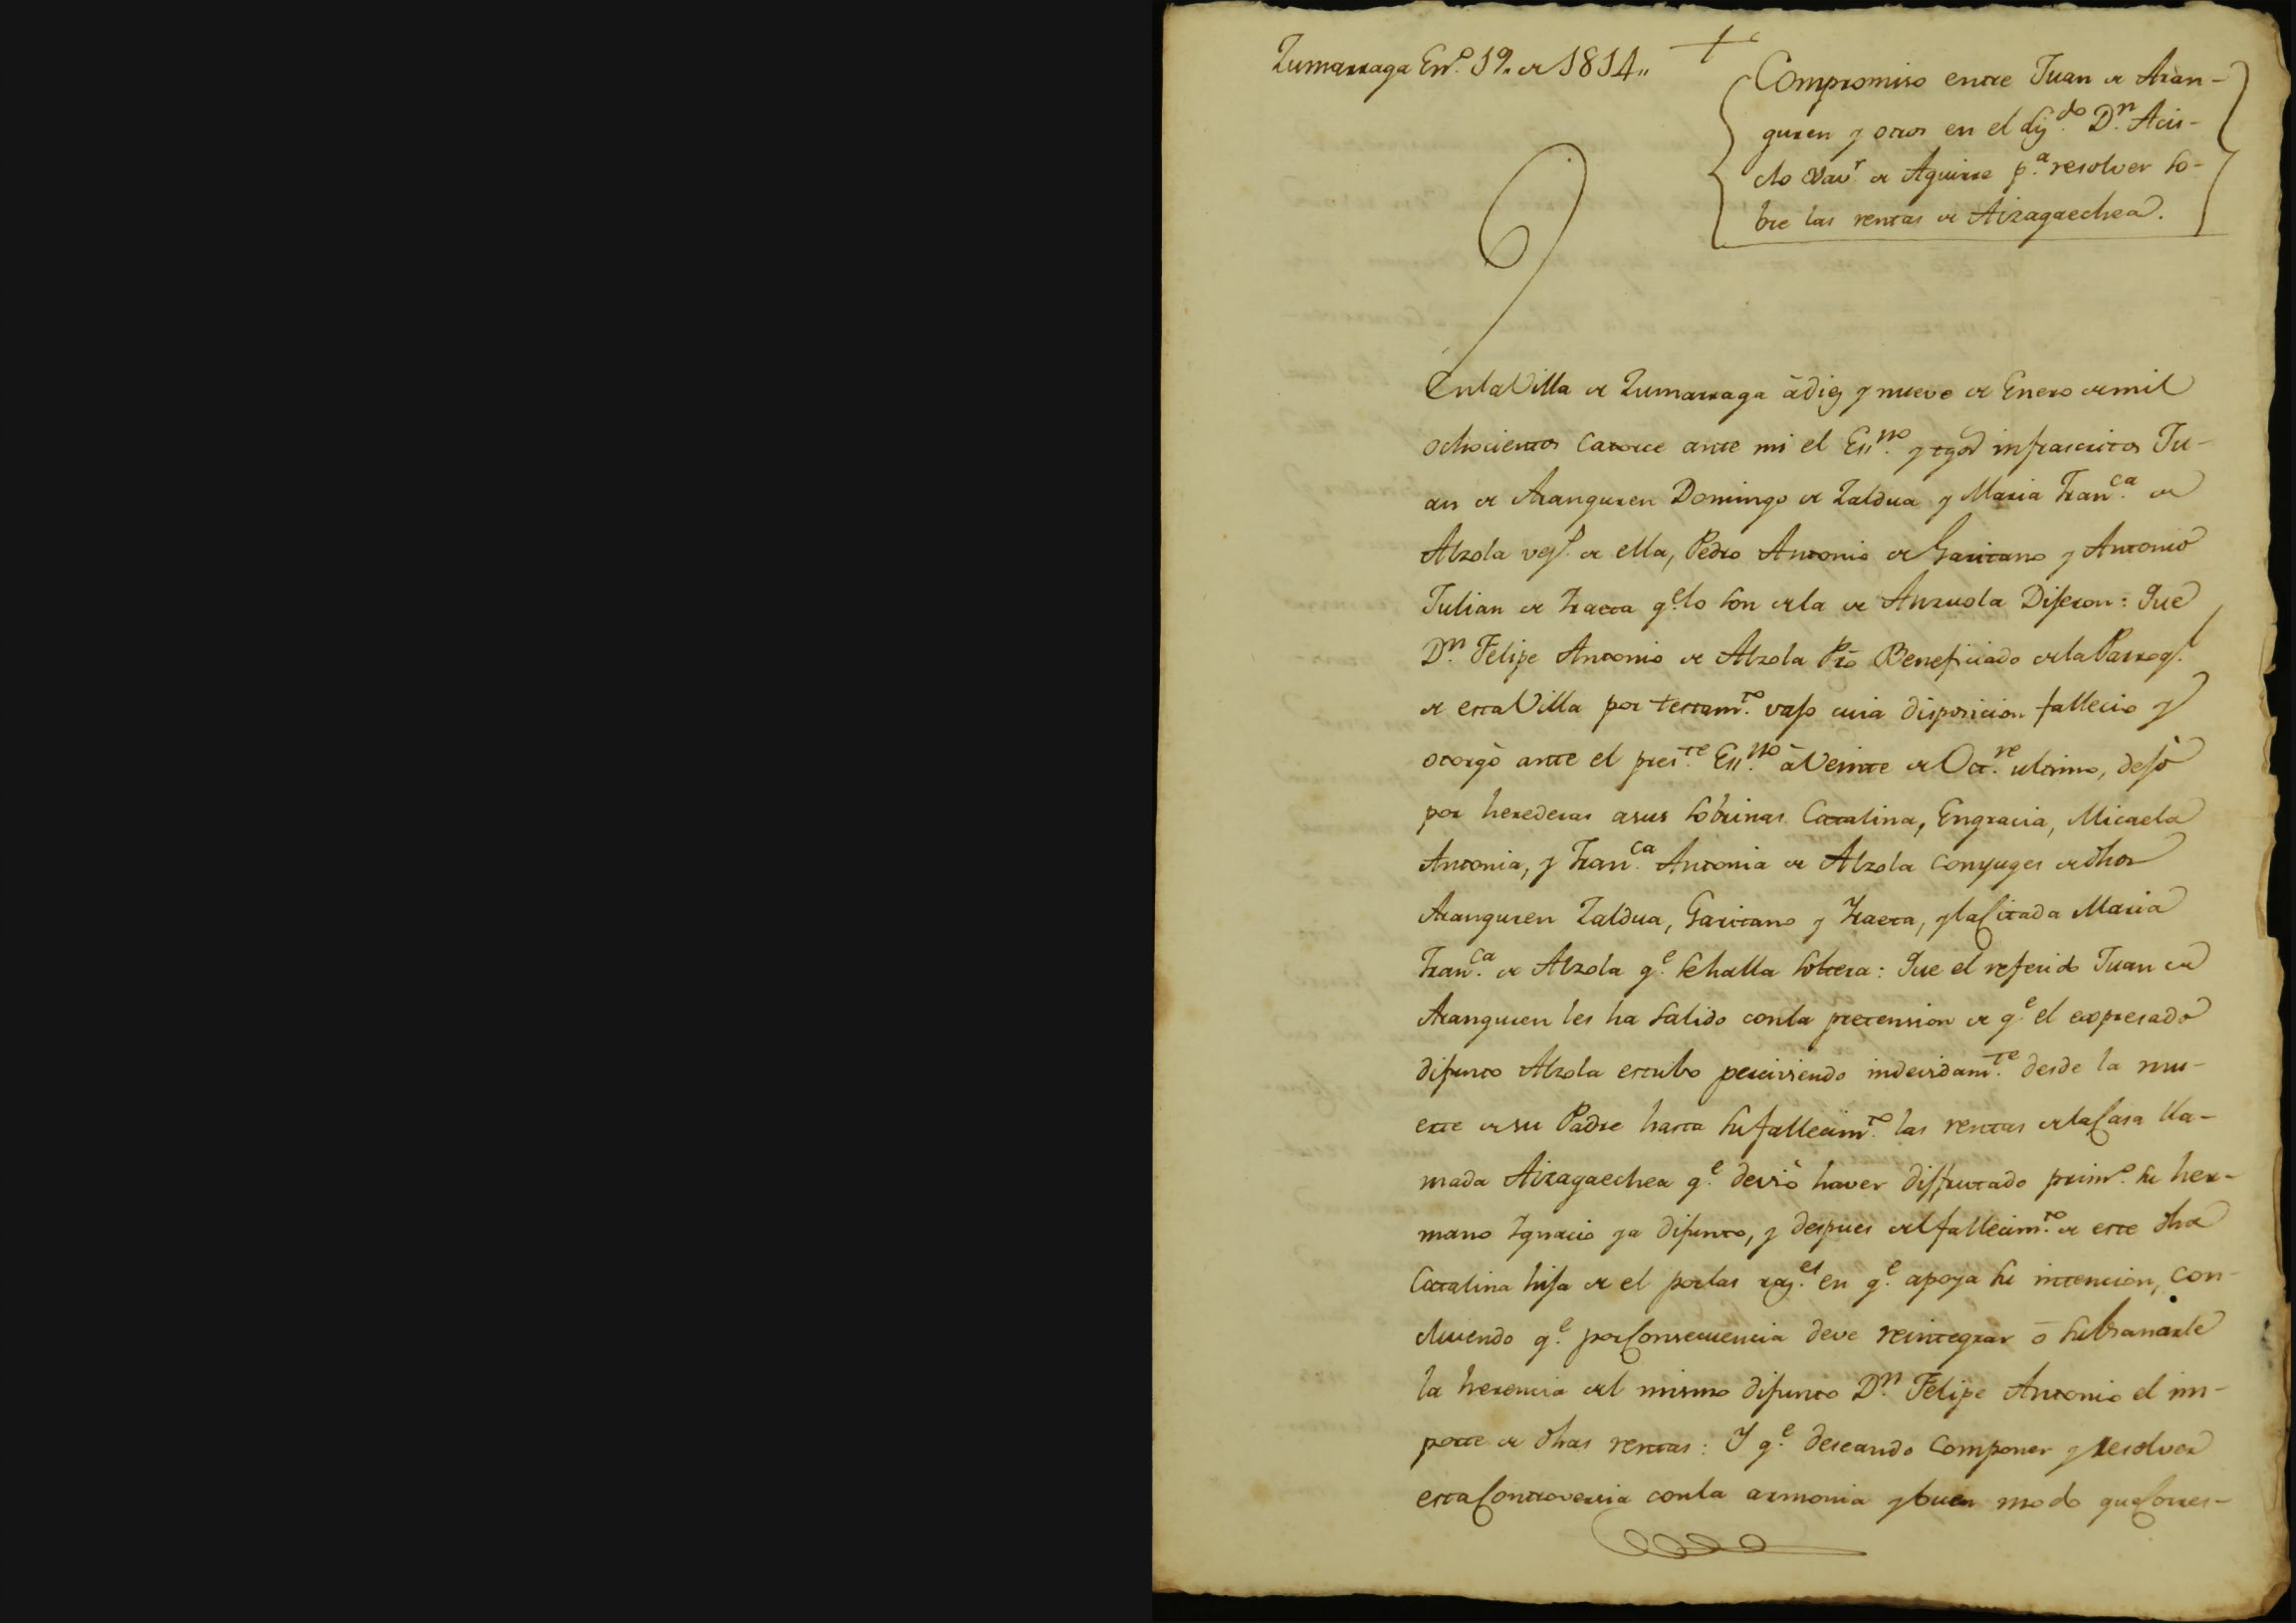 Zumarraga En.º 19. de 1814„
Compromiso entre Juan de Aran-
guren y otros en el Liz.do D.n Acis-
clo Xav.r de Aguirre p.a resolver so-
bre las rentas de Aizagaechea.
En la Villa de Zumarraga à diez y nueve de Enero de mil
ochocientos catorce ante mi el Es.no y tgos infrascritos Ju-
an de Aranguren Domingo de Zaldua y Maria Fran.ca de
Alzola vez.s de ella, Pedro Antonio de Garitano y Antonio
Julian de Iraeta q.e lo son de la de Anzuola Dijeron: Que
D.n Felipe Antonio de Alzola Pró Beneficiado de la Parroq.l
de esta Villa por testam.to vajo cuia disposicion fallecio y
otorgò ante el pres.te Es.no à Veinte de Oct.re ultimo, dejò
por herederas a sus sobrinas Catalina, Engracia, Micaela
Antonia, y Fran.ca Antonia de Alzola conyuges de dhos
Aranguren Zaldua, Garitano y Iraeta, y la Citada Maria
Fran.ca de Alzola q.e se halla soltera: Que el referido Juan de
Aranguren les ha salido con la pretension de q.e el expresado
difunto Alzola estubo perciviendo indevidam.te desde la mu-
erte de su Padre hasta su fallecim.to las rentas de la Casa lla-
mada Aizagaechea q.e deviò haver disfrutado prim.o su her-
mano Ignacio ya difunto, y despues del fallecim.to de este dha
Catalina hija de el por las raz.es en q.e apoya su intencion, con-
cluiendo q.e por Consecuencia deve reintegrar ò subsanarle
la herencia del mismo difunto D.n Felipe Antonio el im-
porte de dhas rentas: Y q.e deseando componer y resolver
esta Controversia con la armonia y buen modo que Corres-